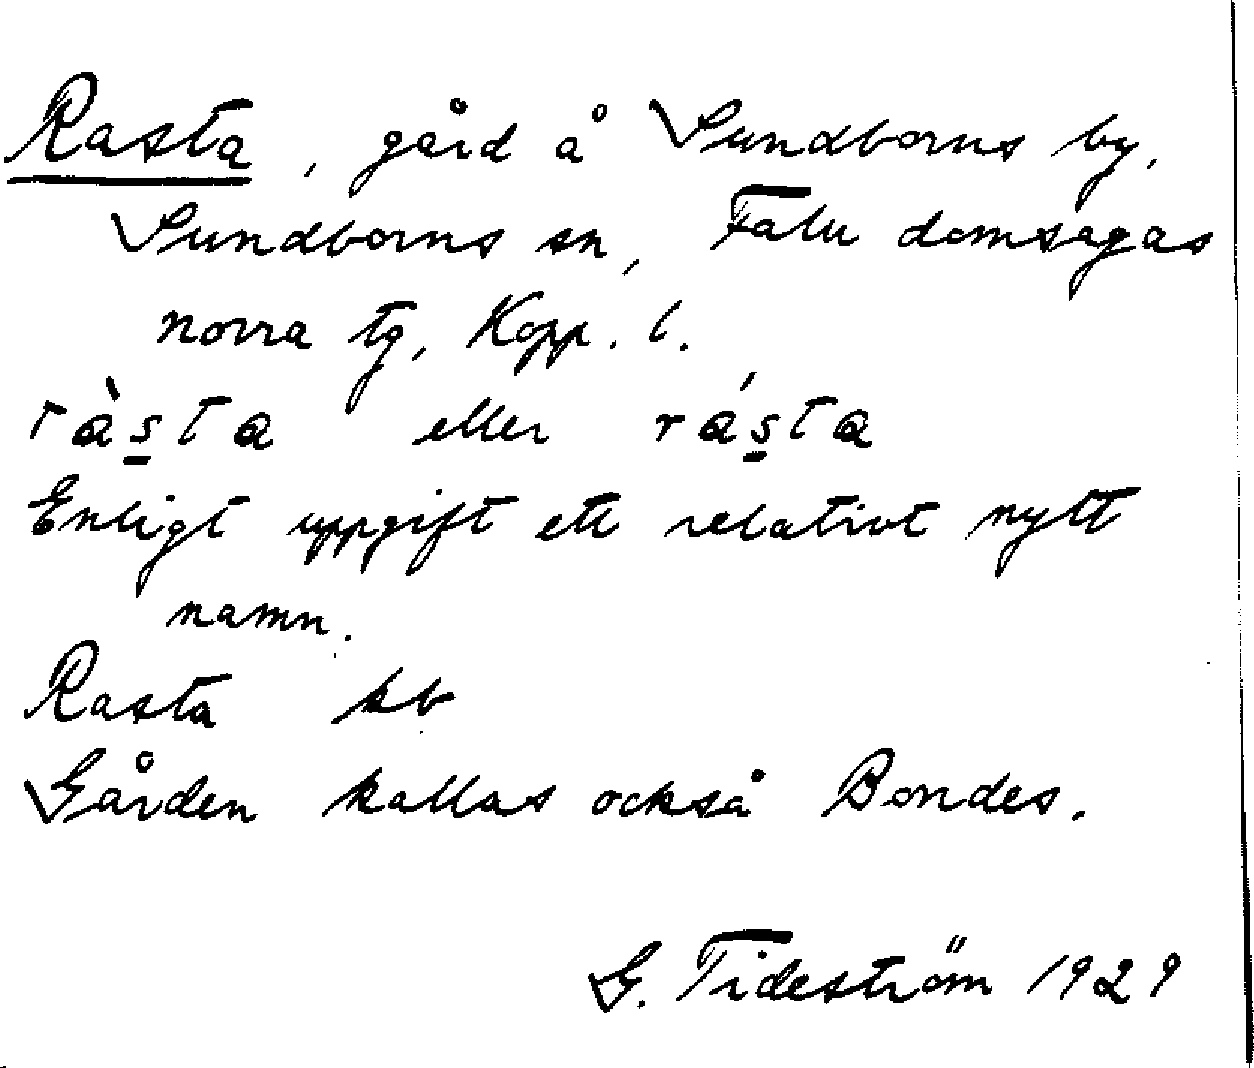 Rasta, gård å Sundborns by,
Sundborns sn, Falu domsagas
norra tg, Kopp. l.
ràs̲ta eller rás̲ta
Enligt uppgift ett relativt nytt
namn.
Rasta kb
Gården kallas också Bondes.
G. Tideström 1929